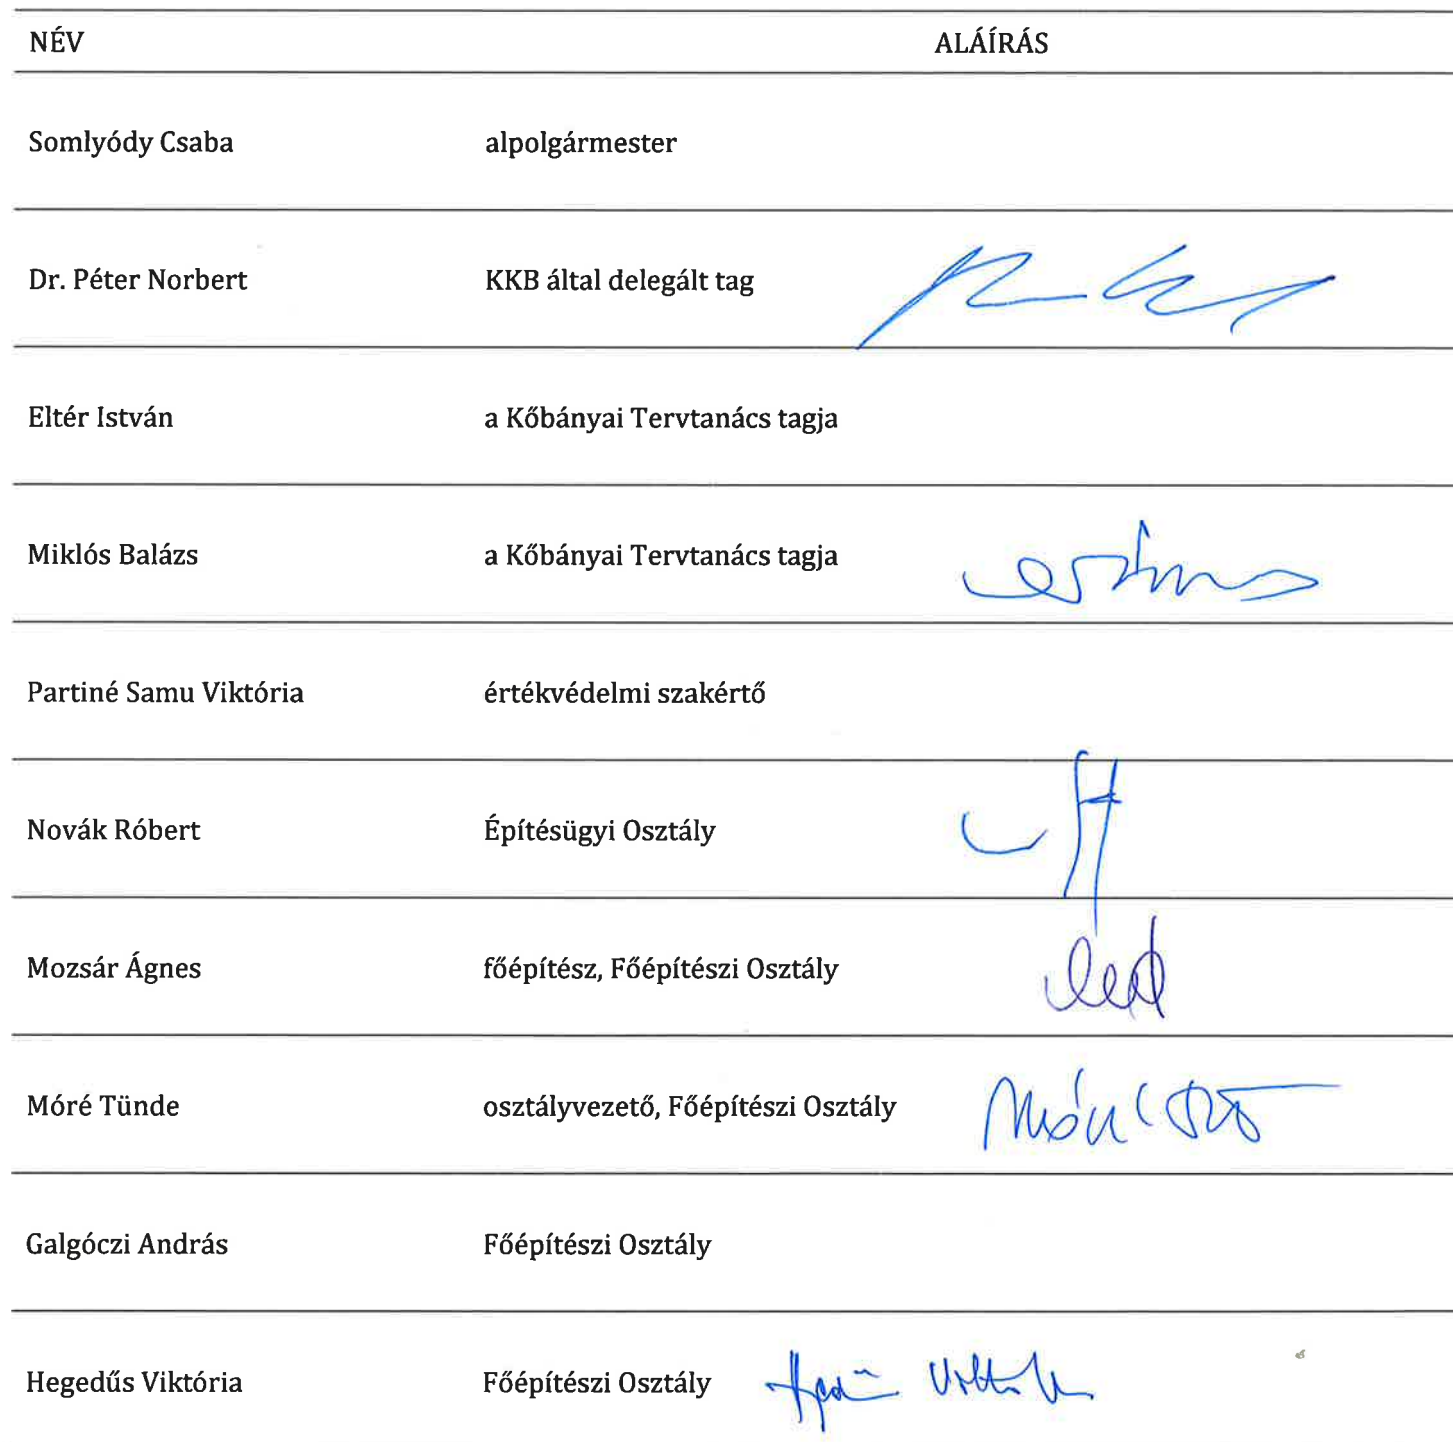 NÉV ALÁÍRÁS
Somlyódy Csaba alpolgármester
Dr. Péter Norbert KKB által delegált tag
Eltér István a Kőbányai Tervtanács tagja
Miklós Balázs a Kőbányai Tervtanács tagja
Partiné Samu Viktória értékvédelmi szakértő
Novák Róbert Építésügyi Osztály
Mozsár Ágnes főépítész, Főépítészi Osztály
Móré Tünde osztályvezető, Főépítészi Osztály
Galgóczi András Főépítészi Osztály
Hegedűs Viktória Főépítészi Osztály